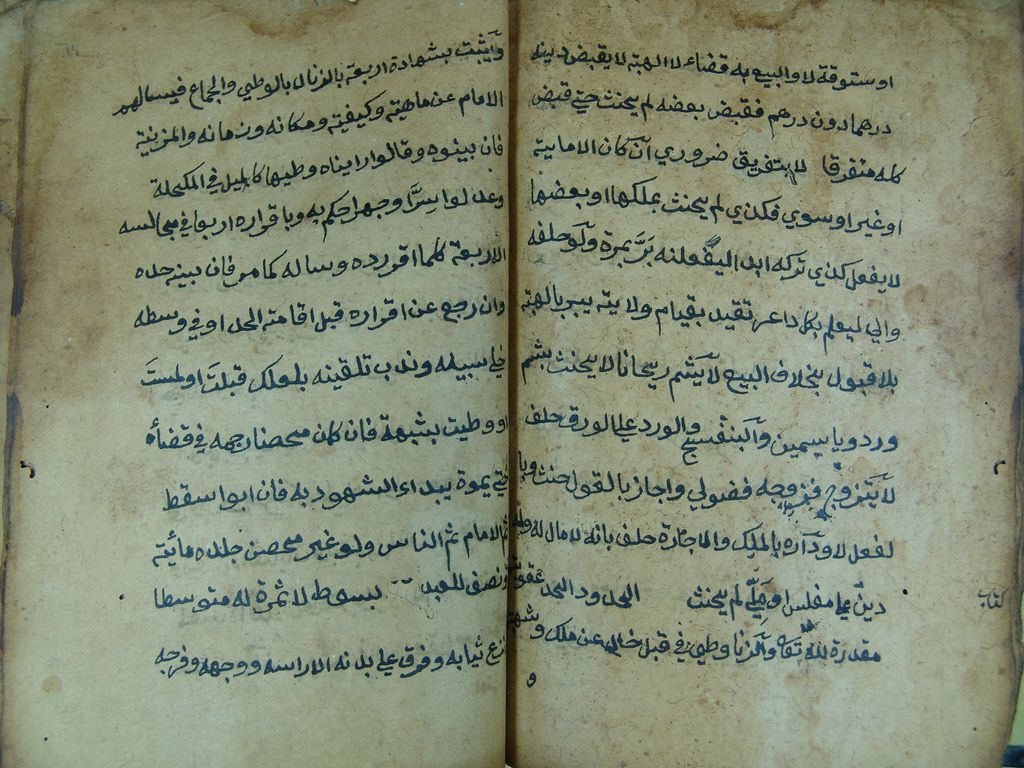 او ستوقة لا والبيع به قضاء لا الهبة لا يقبض دينه
درهما دون درهم فقبض بعضه لم يحنث حتى قبض
كله متفرقا لا بتفريق ضروري ان كان الا ماية
او غير او سوي فكذي لم يحنث بملكها او بعضها
لا يفعل كذي تركه ابدا ليفعلنه بر بمرة ولو حلفه
والي ليعلم بكل داعر تقيد بقيام ولايته يبر بالهبة
بلا قبول بخلاف البيع لا يشم ريحانا لا يحنث بشم
ورد وياسمين والبنفسج والورد على الورق حلف
لا يتزوج فزوجه فضولي واجاز بالقول حنث وبا
لفعل لا وداره بالملك والاجارة حلف بانه لا مال له وله
دين على مفلس او ملي لم يحنث الحدود الحد عقوبة
مقدرة لله تعالى والزنا وطي في قبل خال عن ملك وشبهة
و
كتاب
ويثبت بشهادة اربعة بالزنا لا بالوطي والجماع فيسالهم
الامام عن ماهيته وكيفيته ومكانه وزمانه والمزنية
فان بينوه وقالوا رايناه وطيها كالميل في المكحلة
وعدلوا سرا وجهرا حكم به وباقراره اربعا في مجالسه
الاربعة كلما اقر رده وساله كما مر فان بينه حده
وان رجع عن اقراره قبل اقامة الحد او في وسطه
خلي سبيله وندب تلقينه بلعلك قبلت او لمست
او وطيت بشبهة فان كان محصنا رجمه في فضاء
حتى يموة يبداء الشهود به فان ابوا سقط
ثم الامام ثم الناس ولو غير محصن جلده مائية
ونصف للعبد بسوط لا ثمرة له متوسطا
نزع ثيابه وفرق على بدنه الا راسه ووجهه وفرجه